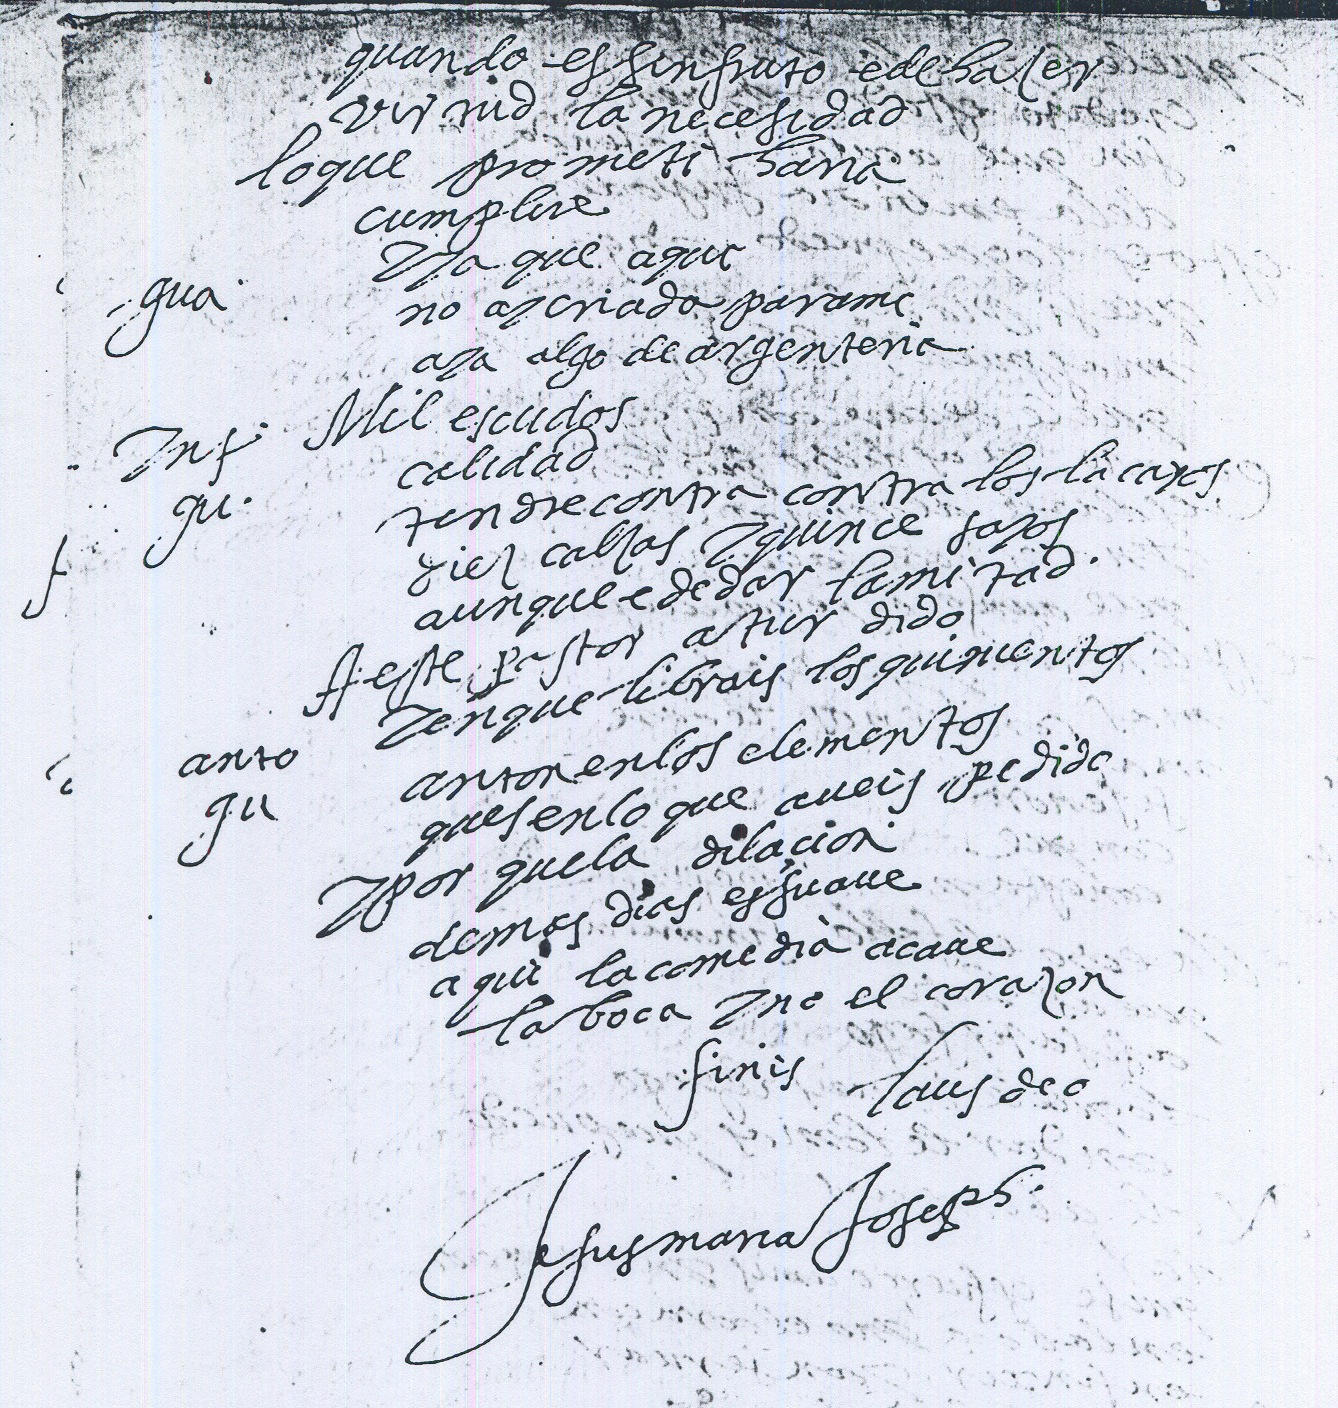 quando es sin fruto e de hacer
virtud la necesidad
lo que prometi haria
cumplire
Ya que aqui
gua no ay criado para mi
aya algo de argenteria
Inf. Mil escudos
calidad
gu. tendre contra contra los lacayos
diez calzas y quince sayos
aunque e de dar la mitad.
A este pastor atur dido
Yen que librais los quinientos
anto anton en los elementos
gu ques en lo que aueis pedido
Y por que la dilaçion
de mas dias es suaue
aqui la comedia acaue
la boca y no el corazon
finis laus deo
Jesus maria Joseph.